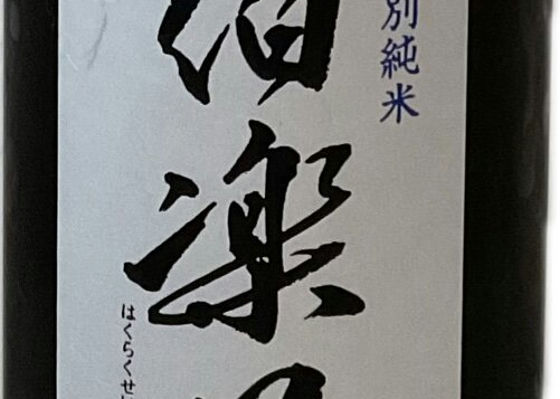 別純米
伯楽
はくらくせ